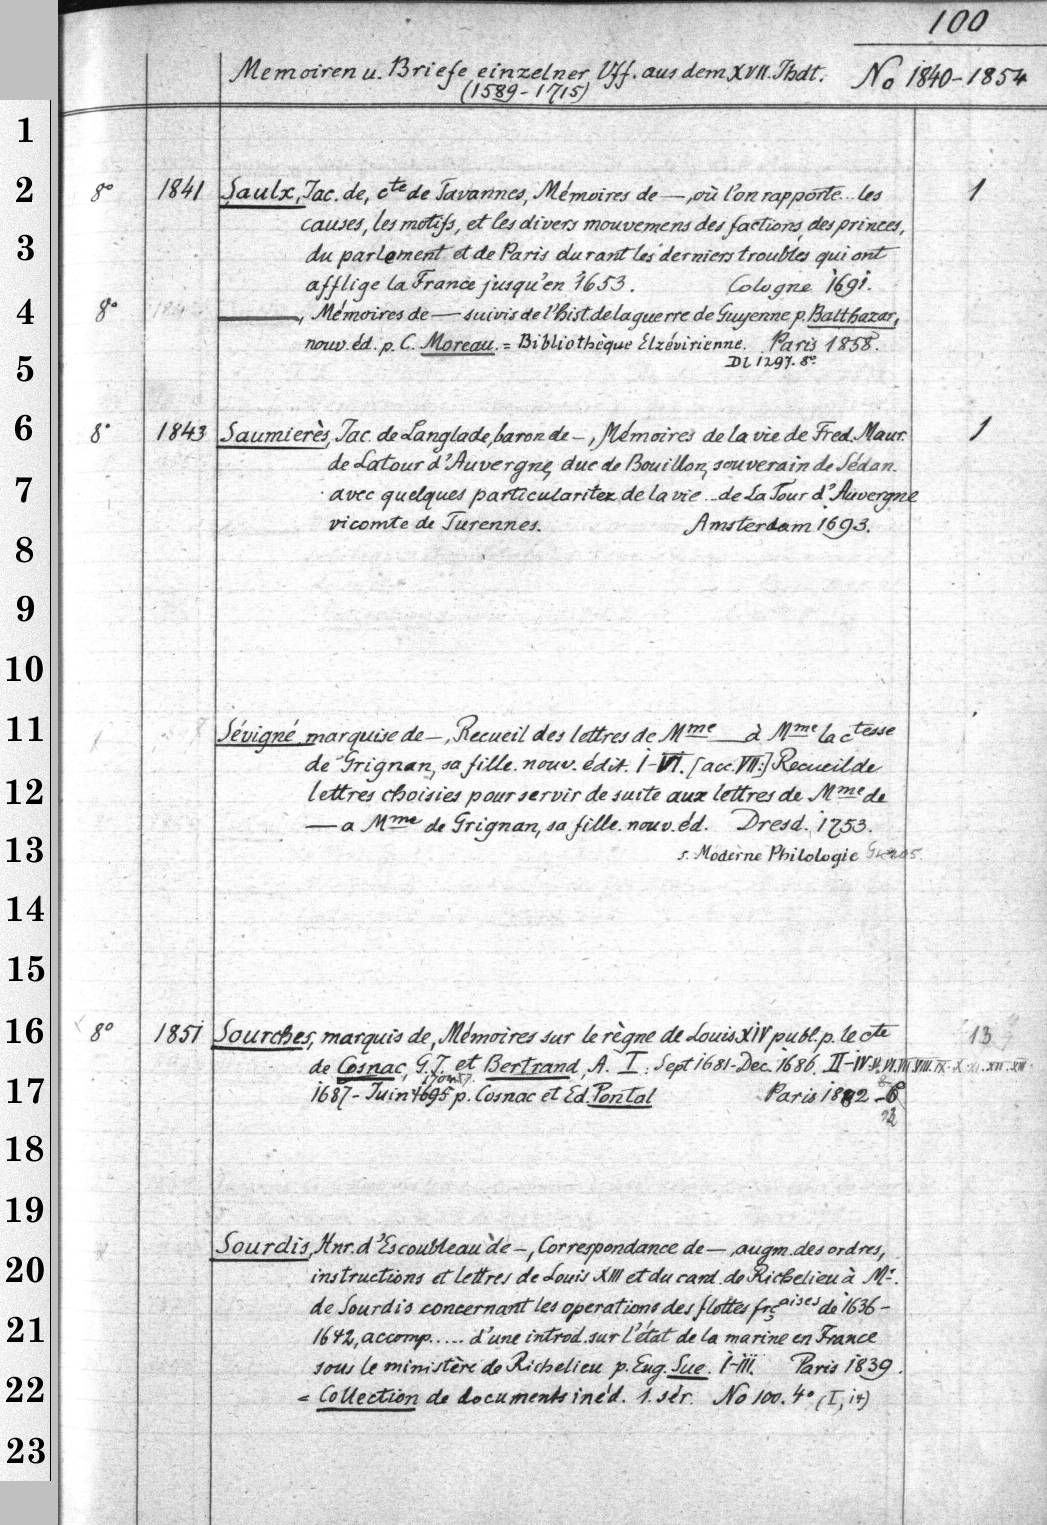 100
Memoiren u. Briefe einzelner Vff. aus dem XVII. Jhdt. No 1840-1854
(1589-1715)
1
2 8° 1841 Saulx, Jac. de, cte de Tavannes, Mémoires de —, où l'on rapporte... les 1
causes, les motifs, et les divers mouvemens des factions, des princes,
3 du parlement et de Paris durant les derniers troubles qui ont
afflige la France jusqu'en 1653. Cologne 1691.
4 8° ———, Mémoires de — suivis de l'hist. de la guerre de Guyenne p. Balthazar,
nouv. éd. p. C. Moreau. = Bibliothèque Elzévirienne. Paris 1858.
5 Di 1297. 8°.
6 8° 1843 Saumierès, Jac. de Langlade, baron de —, Mémoires de la vie de Fred. Maur. 1
de Latour d'Auvergne, duc de Bouillon, souverain de Sédan.
7 avec quelques particularitez de la vie ... de La Tour d'Auvergne
vicomte de Turennes. Amsterdam 1693.
8
9
10
11 Sévigné marquise de —, Recueil des lettres de Mme — à Mme la ctesse
de Grignan, sa fille. nouv. édit. I-VI. [acc. VII:] Recueil de
12 lettres choisies pour servir de suite aux lettres de Mme de
— a Mme de Grignan, sa fille. nouv. éd. Dresd. 1753.
13 s. Moderne Philologie
14
15
16 8° 1851 Sourches, marquis de, Mémoires sur le règne de Louis XIV publ. p. le cte 13
de Cosnac, G. J. et Bertrand, A. I: Sept 1681-Dec. 1686. II-IV. V. VI. VII. VIII. IX. X. XI. XII. XIII.
17 1687-Juin 1695 p. Cosnac et Ed. Pontal Paris 1882-
18
19
Sourdis, Hnr. d'Escoubleau de —, Correspondance de —, augm. des ordres,
20 instructions et lettres de Louis XIII et du card. de Richelieu à Mr.
de Sourdis concernant les operations des flottes frçaises de 1636-
21 1642, accomp..... d'une introd. sur l'état de la marine en France
sous le ministère de Richelieu p. Eug. Sue. I-III. Paris 1839.
22 = Collection de documents inéd. 1. sér. No 100. 4° (I, 14)
23